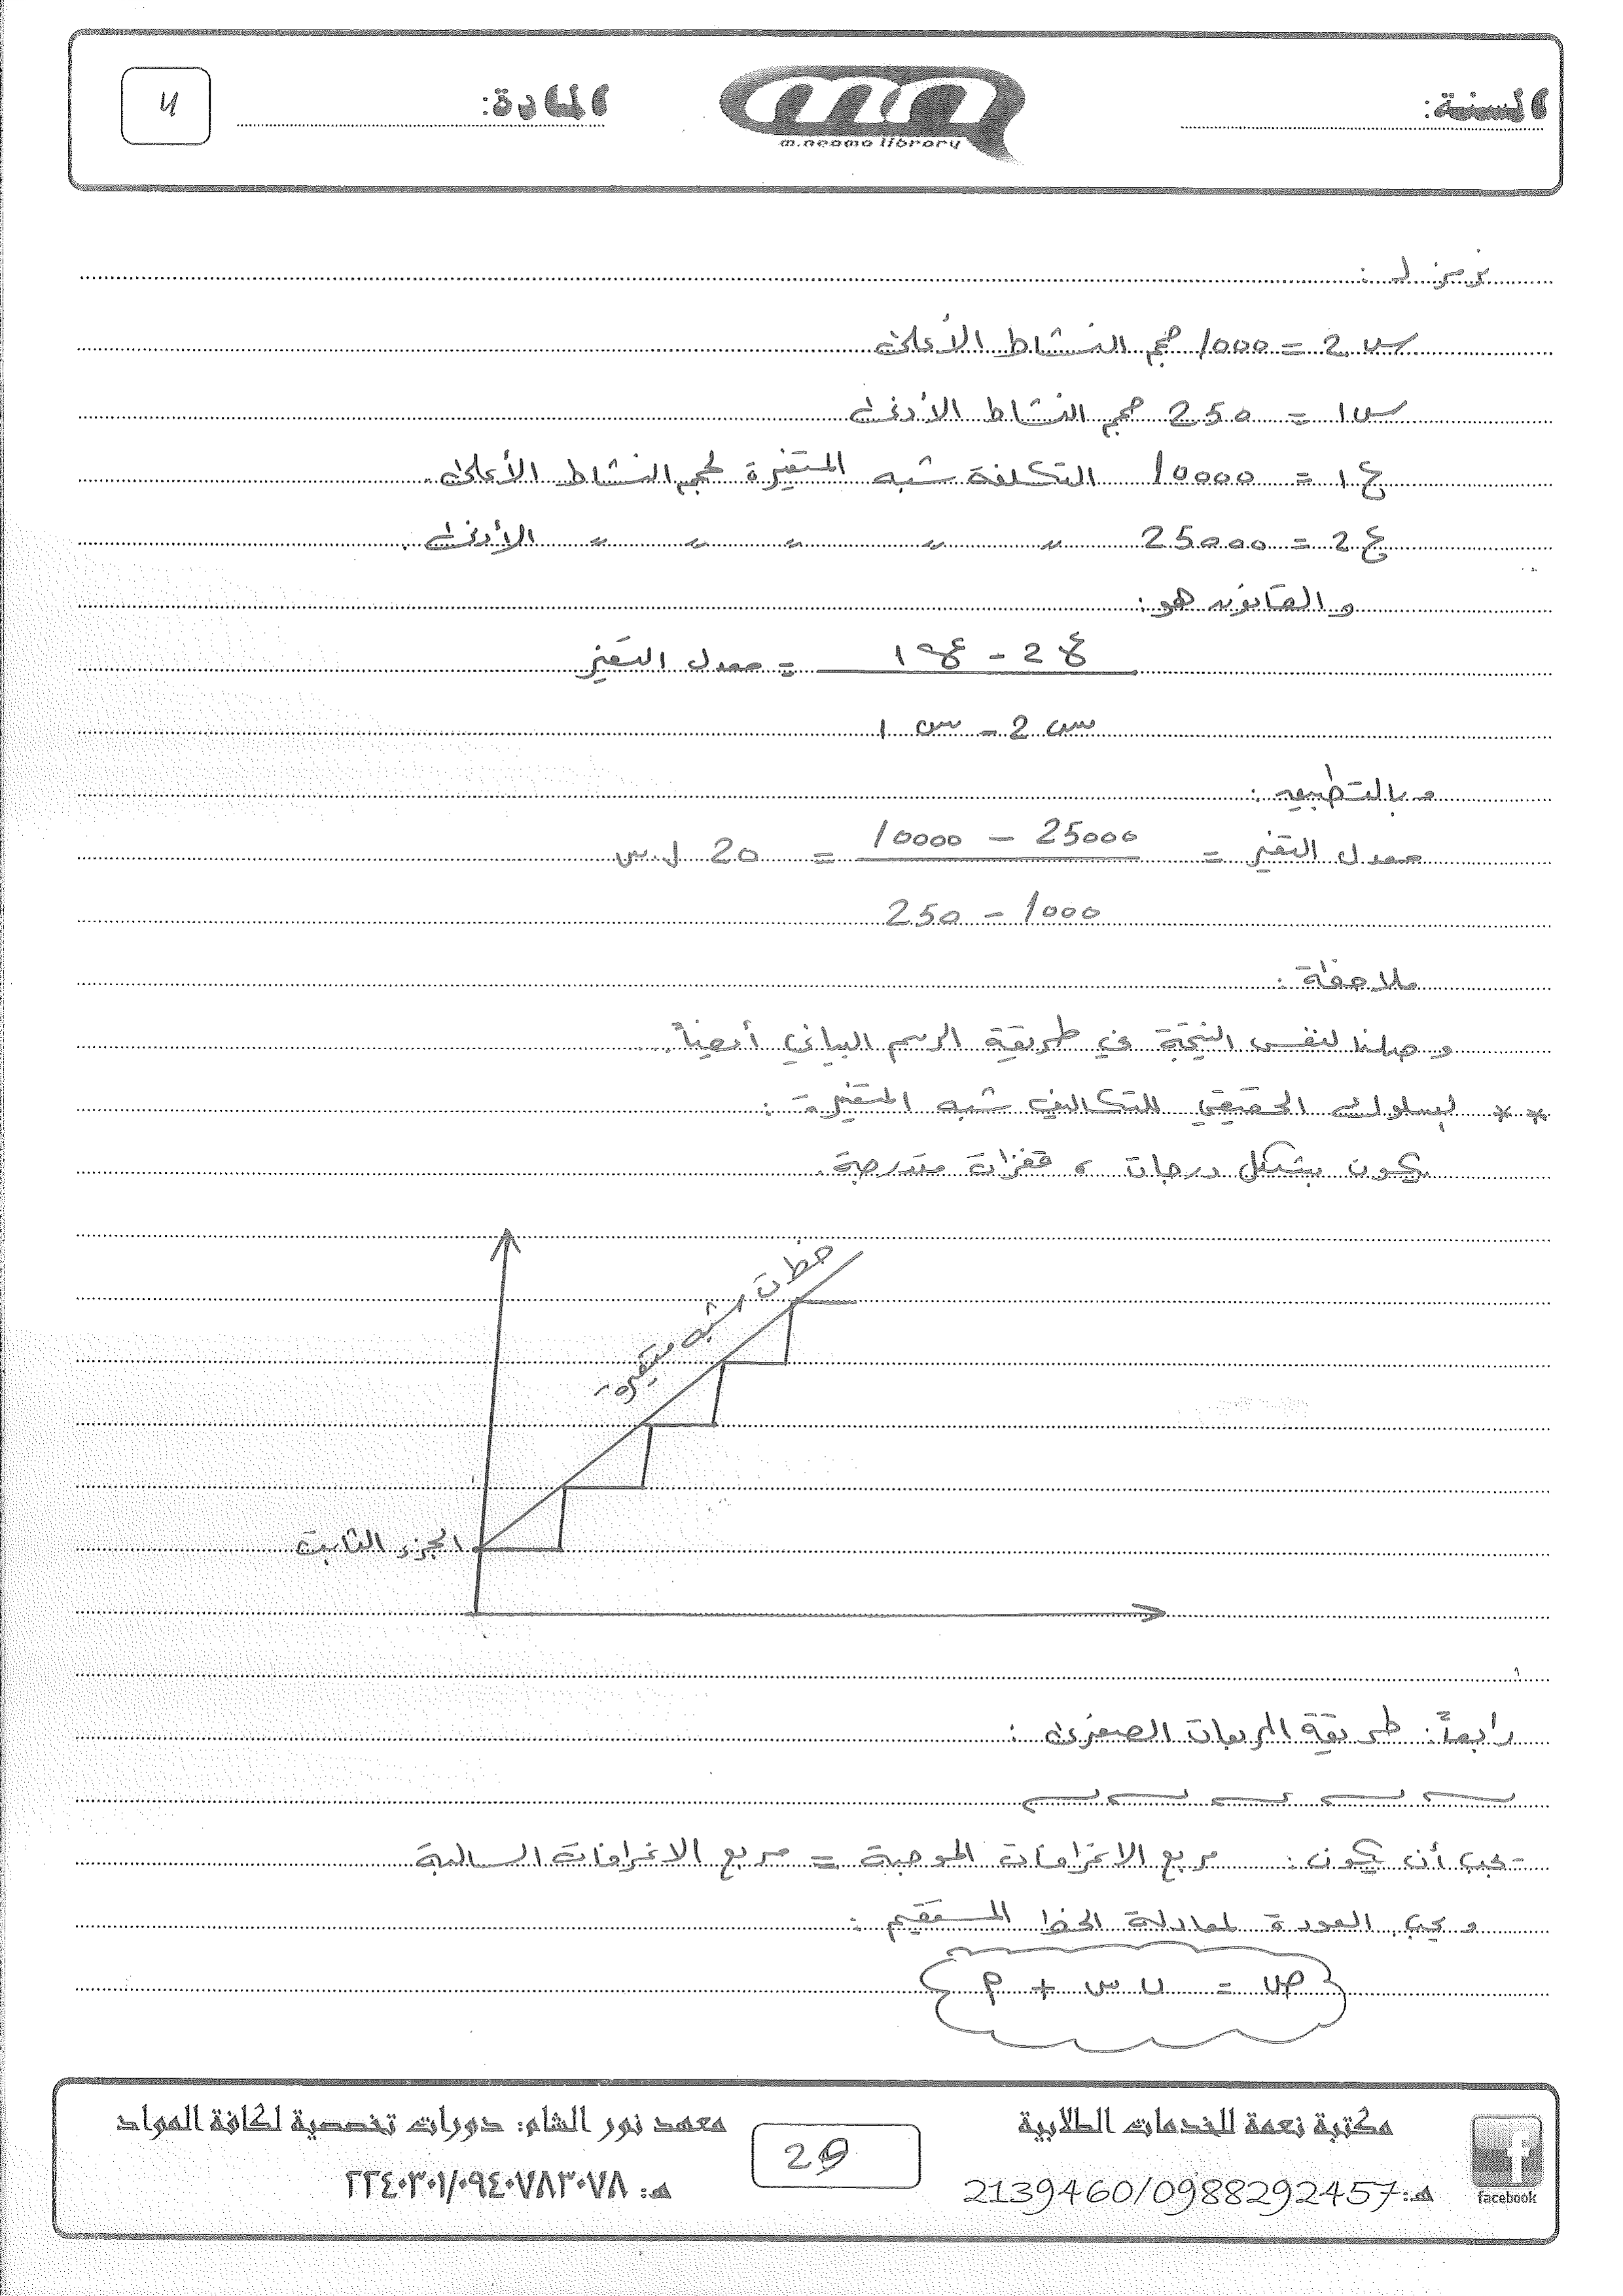 السنة:
m.neama library
المادة:
4
نرمز لـ :
س2 = 1000 حجم النشاط الأعلى
س1 = 250 حجم النشاط الأدنى
ع1 = 10000 التكلفة شبه المتغيرة لحجم النشاط الأعلى.
ع2 = 25000 " " " " " الأدنى.
والقانون هو:
ع2 - ع1 = معدل التغير
س2 - س1
وبالتطبيق:
معدل التغير = 25000 - 10000 = 20 ل.س
1000 - 250
ملاحظة:
وصلنا لنفس النتيجة في طريقة الرسم البياني أيضاً.
** السلوك الحقيقي للتكاليف شبه المتغيرة:
يكون بشكل درجات، قفزات متدرجة.
خط ت شبه متغيرة
الجزء الثابت
رابعاً: طريقة المربعات الصغرى:
-يجب أن يكون: مربع الانحرافات الموجبة = مربع الانحرافات السالبة
ويجب العودة لمعادلة الخط المستقيم:
ص = ب س + م
مكتبة نعمة للخدمات الطلابية
هـ: 2139460/0988292457
facebook
29
معهد نور الشام: دورات تخصصية لكافة المواد
هـ: ٢٢٤٠٣٠١/٠٩٤٠٧٨٣٠٧٨